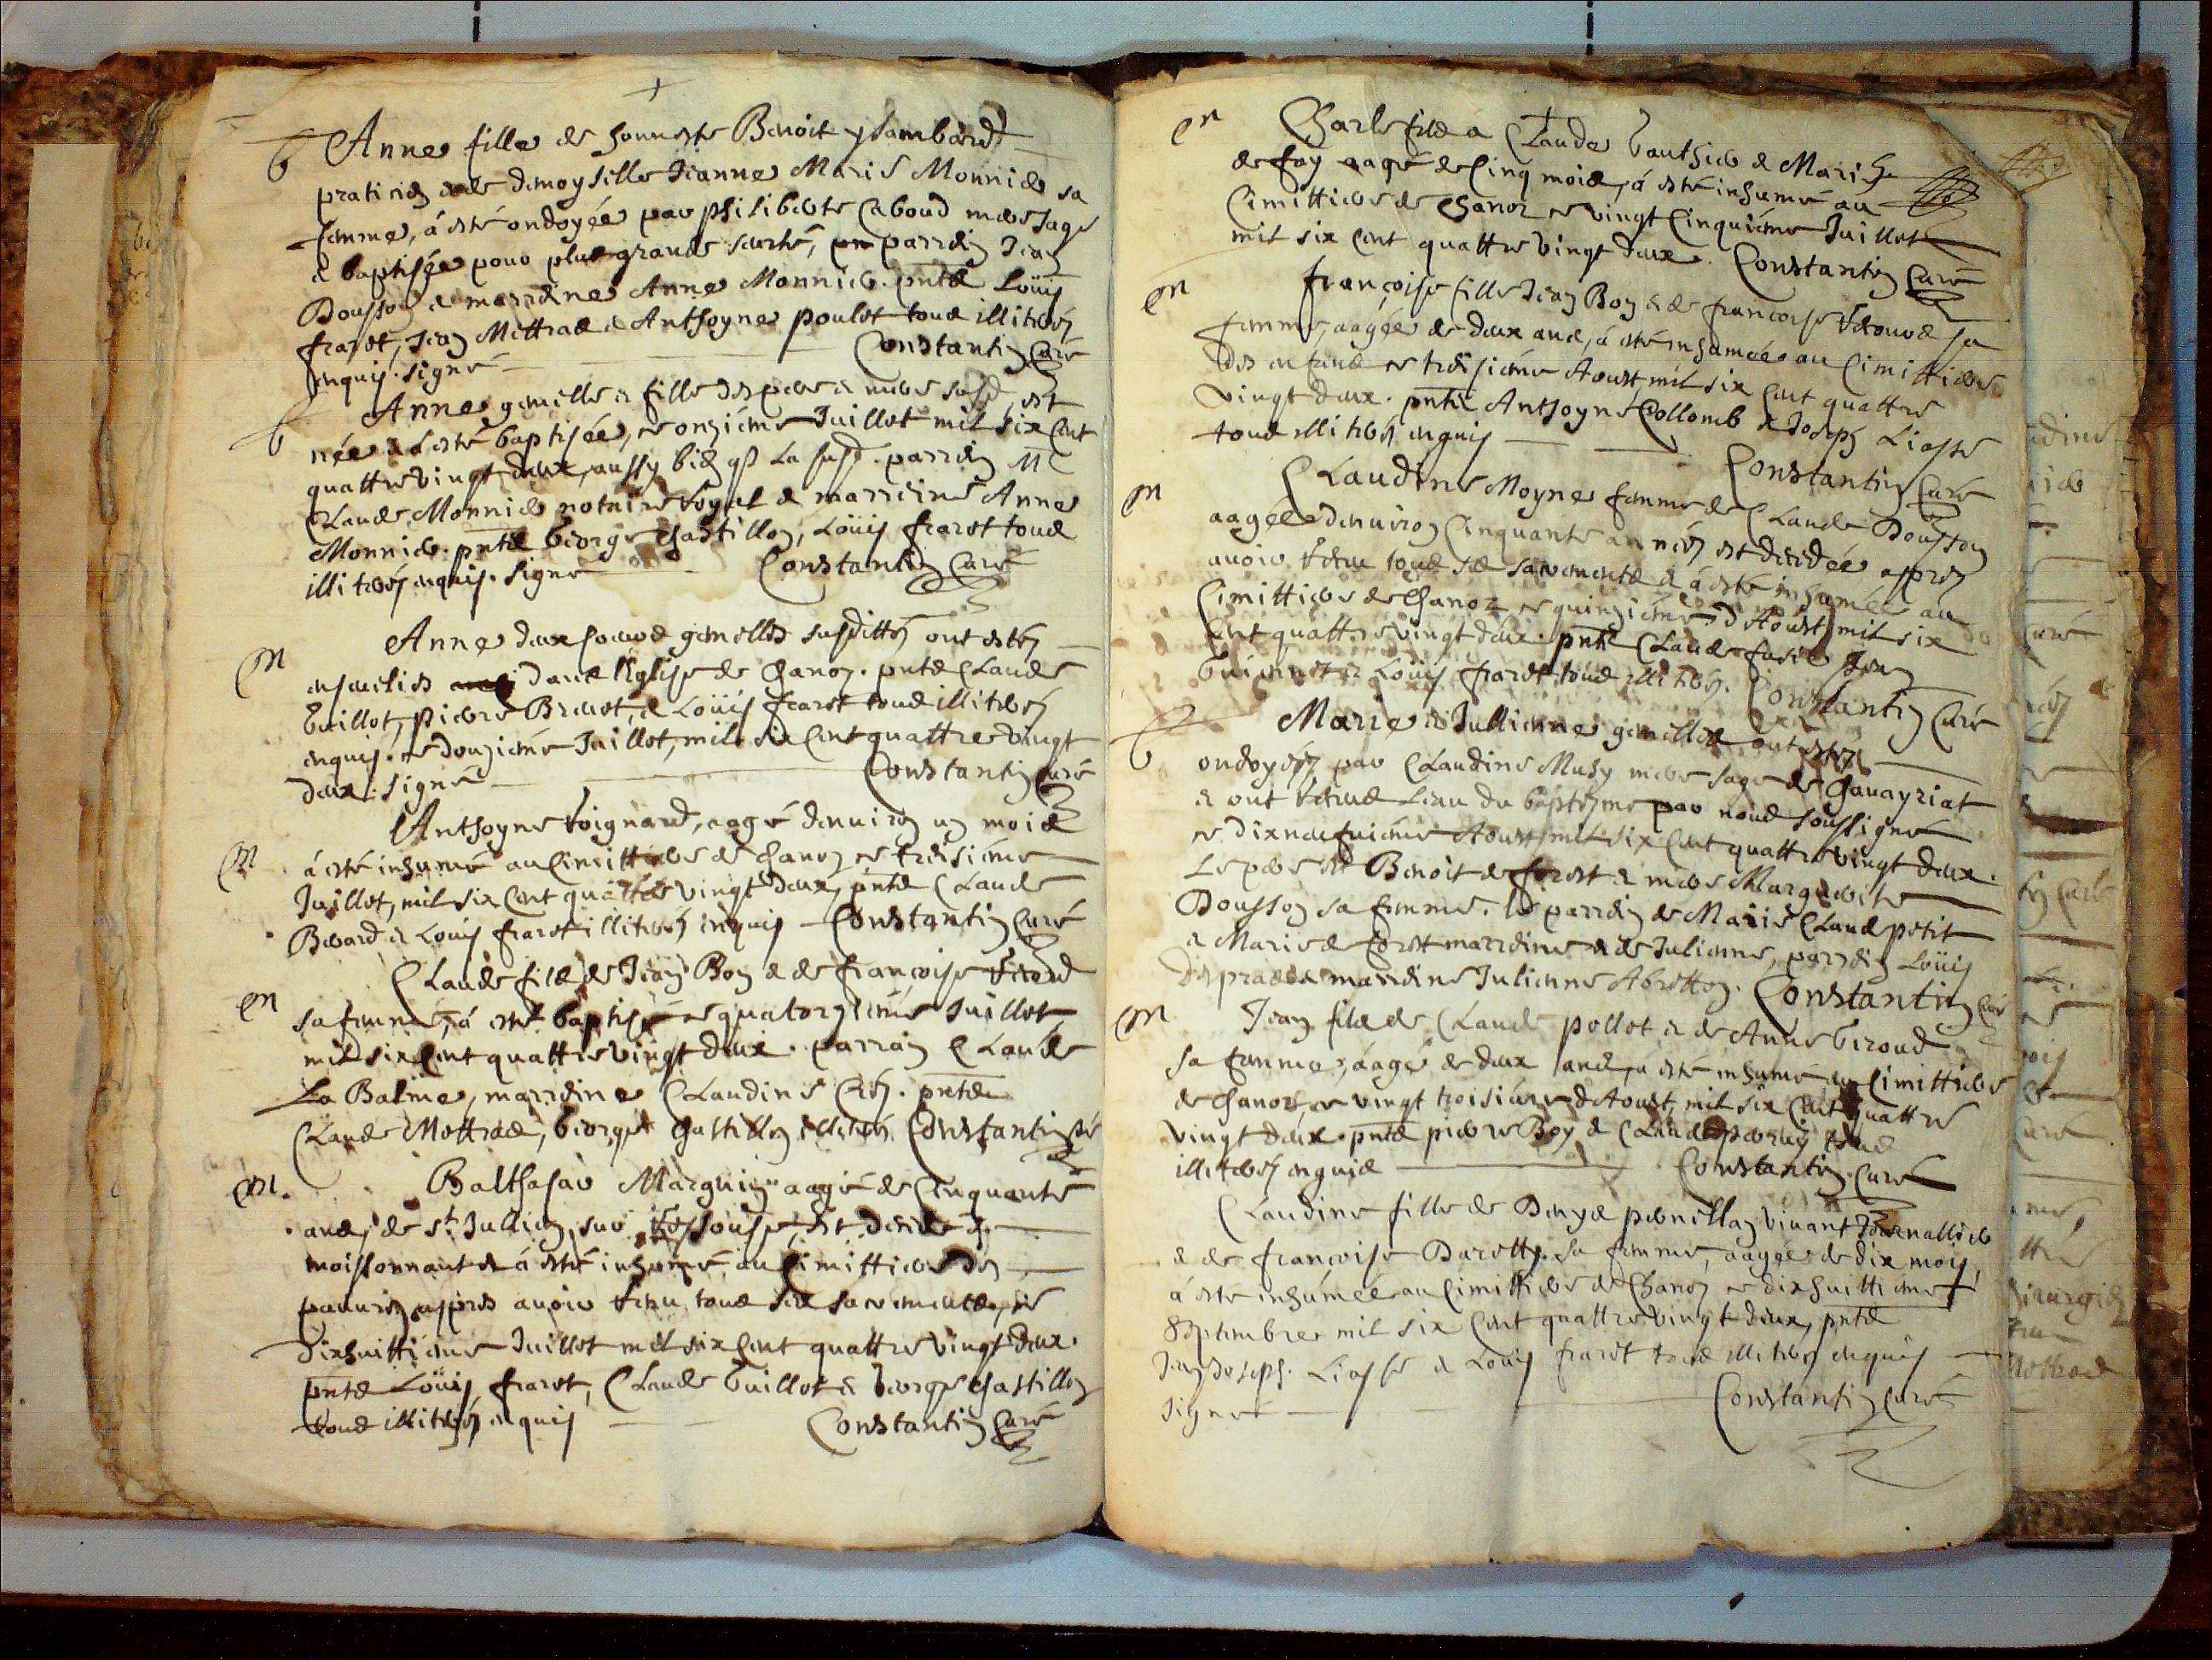 +
b Anne fille de honneste Benoit ysambard
praticien & de damoyselle Jeanne Marie Monnier sa
femme, á esté ondoyée par philiberte Caboud mere sage
& baptisée pour plus grande seurté, parrein Jean
Bousson & marreine Anne Monnier. pntz Loüis
frarot, Jean Mettras & Anthoyne poulet tous illiterés
enquis. signé Constantin Curé
b Anne gemelle & fille des pere & mere susd est
née & á esté baptisée, ce onzième Juillet mil six cent
quattrevingt deux, aussy bien q la susd. parrein Mr
Claude Monnier notaire royal & marreine Anne
Monnier. pntz George Chastillon, Loüis frarot tous
illiterés enquis. signé Constantin Curé
m Anne deux soeurs gemelles susdittes ont estés
ensevelies dans l'Eglise de Chanoz. pntz Claude
Guillot, pierre Brevet, & Loüis frarot tous illiterés
enquis. ce douzième Juillet, mil six cent quattre vingt
deux. signé Constantin Curé
m Anthoyne Voignard, aagé d'environ un mois
á esté inhumé au Cimittiere de Chanoz ce treisième
Juillet, mil six cent quattre vingt deux, pntz Claude
Berard & Louis frarot illiterés enquis Constantin Curé
m Claude fils de Jean Boy & de françoise
sa femme, á esté baptisé ce quatorzième Juillet
mil six cent quattre vingt deux. parrain Claude
La Balme, marreine Claudine . pntz
Claude Mettras, George Chastillon illiterés Constantin Curé
m. Balthasar Marguin aagé de Cinquante
ans, de st Jullien sur Ressouse, est decédé
moissonnant & á esté inhumé au Cimittiere des
pauvres apres avoir receu tous ses sacrements, ce
dixhuittième Juillet mil six cent quattre vingt deux.
pntz Loüis frarot, Claude Guillot & George Chastillon
tous illiterés enquis Constantin Curé
m Charle fils a Claude Gauthier & Marie
de fay aagé de Cinq mois, á esté inhumé au
Cimittiere de Chanoz ce vingt Cinquième Juillet
mil six cent quattre vingt deux. Constantin Curé
m françoise fille Jean Boy & de francoise sa
femme, aagée de deux ans, á esté inhumée au Cimittiere
des enfans ce treisième Aoust mil six cent quattre
vingt deux. pntz Anthoyne Collomb & Joseph Liasse
tous illiterés enquis Constantin Curé
m Claudine Moyne femme de Claude Bousson
aagée d'environ Cinquante années est decedée appres
avoir receu tous ses sacrements & á esté inhumée au
Cimittiere de Chanoz ce quinzième d'Aoust mil six
cent quattre vingt deux. pntz Claude Jean
& Loüis frarot tous illiterés. Constantin Curé
b Marie & Jullienne gemelles ont estés
ondoyés par Claudine Musy mere sage de Chavayriat
& ont receus l'eau du baptesme par nous soussigné
ce dixneufuième Aoust mil six cent quattre vingt deux.
Le pere est Benoit de forest & mere Marguerite
Bousson sa femme. le parrein de Marie Claude petit
& Marie de forest marreine & de Julienne, parrein Loüis
despras & marreine Julienne Abretton. Constantin Curé
m Jean fils de Claude pollet & de Anne Giroud
sa femme, aagé de deux ans, á esté inhumé au Cimittiere
de Chanoz ce vingt troisième d'Aoust, mil six cent quattre
vingt deux. pntz pierre Boy & Claude tous
illiterés enquis Constantin Curé
Claudine fille de Denys vivant
& de françoise sa femme, aagée de dix mois,
á esté inhumée au Cimittiere de Chanoz ce dixhuittième
Septembre mil six cent quattre vingt deux, pntz
Jean Joseph Liasse & Louis frarot tous illiterés enquis
signé Constantin Curé